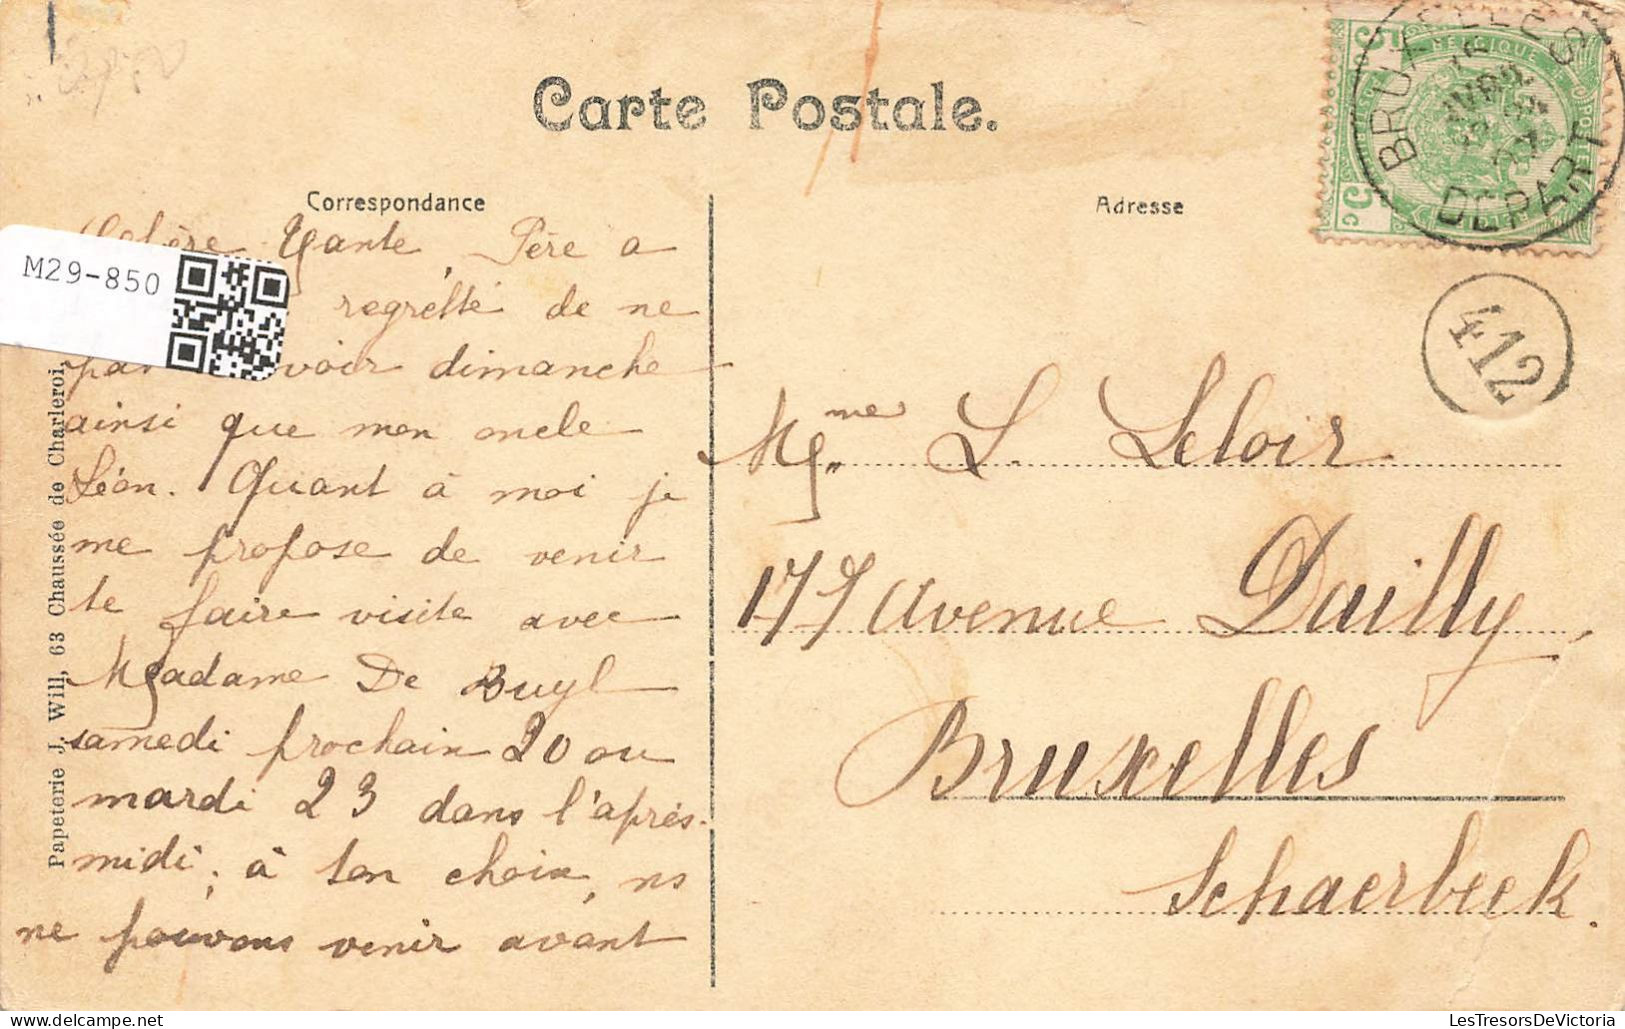 Carte Postale.
BRUXELLES
AVRIL
07
DEPART
BELGIQUE
5c
M29-850
Correspondance
Adresse
412
Tante, Père a
regretté de ne
voir dimanche
ainsi que mon oncle
Léon. Quant à moi je
me propose de venir
te faire visite avec
Madame De Buyl
samedi prochain 20 ou
mardi 23 dans l'après-
midi, à ton choix, ns
ne pouvons venir avant
Mme L. Leloir
177 Avenue Dailly,
Bruxelles
Schaerbeek.
Papeterie J. Will, 63 Chaussée de Charleroi,
LesTresorsDeVictoria